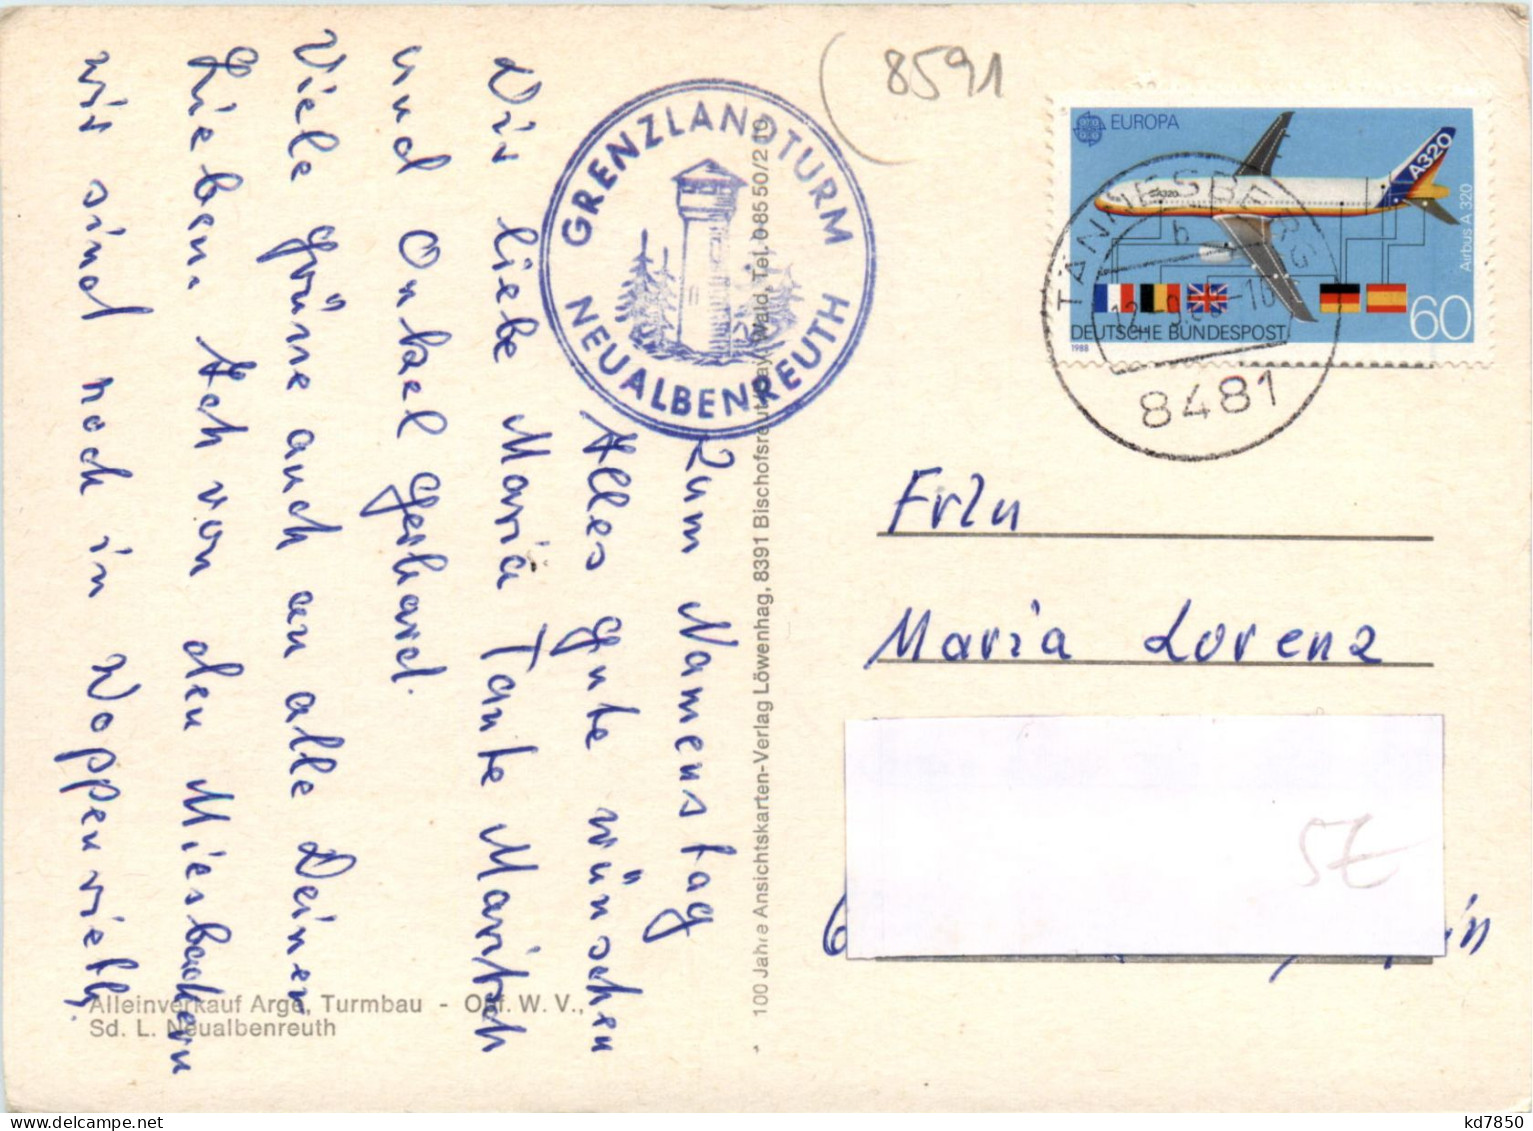 Zum Namenstag
Alles gute wünschen
Dir liebe Maria Tante Maritsch
und Onkel Gerhard.
Viele grüne auch an alle Deinen
Lieben. Ach von den Miesbachern
wir sind noch in Woppenrieth
GRENZLANDTURM
NEUALBENREUTH
8591
EUROPA
A320
Airbus A 320
DEUTSCHE BUNDESPOST
60
1988
TÄNNESBERG
b
8481
Frln
Maria Lorenz
57
100 Jahre Ansichtskarten-Verlag Löwenhag, 8391 Bischofsreut/bay. Wald, Tel. 0 85 50/2 19
Alleinverkauf Arge, Turmbau - Off. W. V.,
Sd. L. Neualbenreuth
kd7850